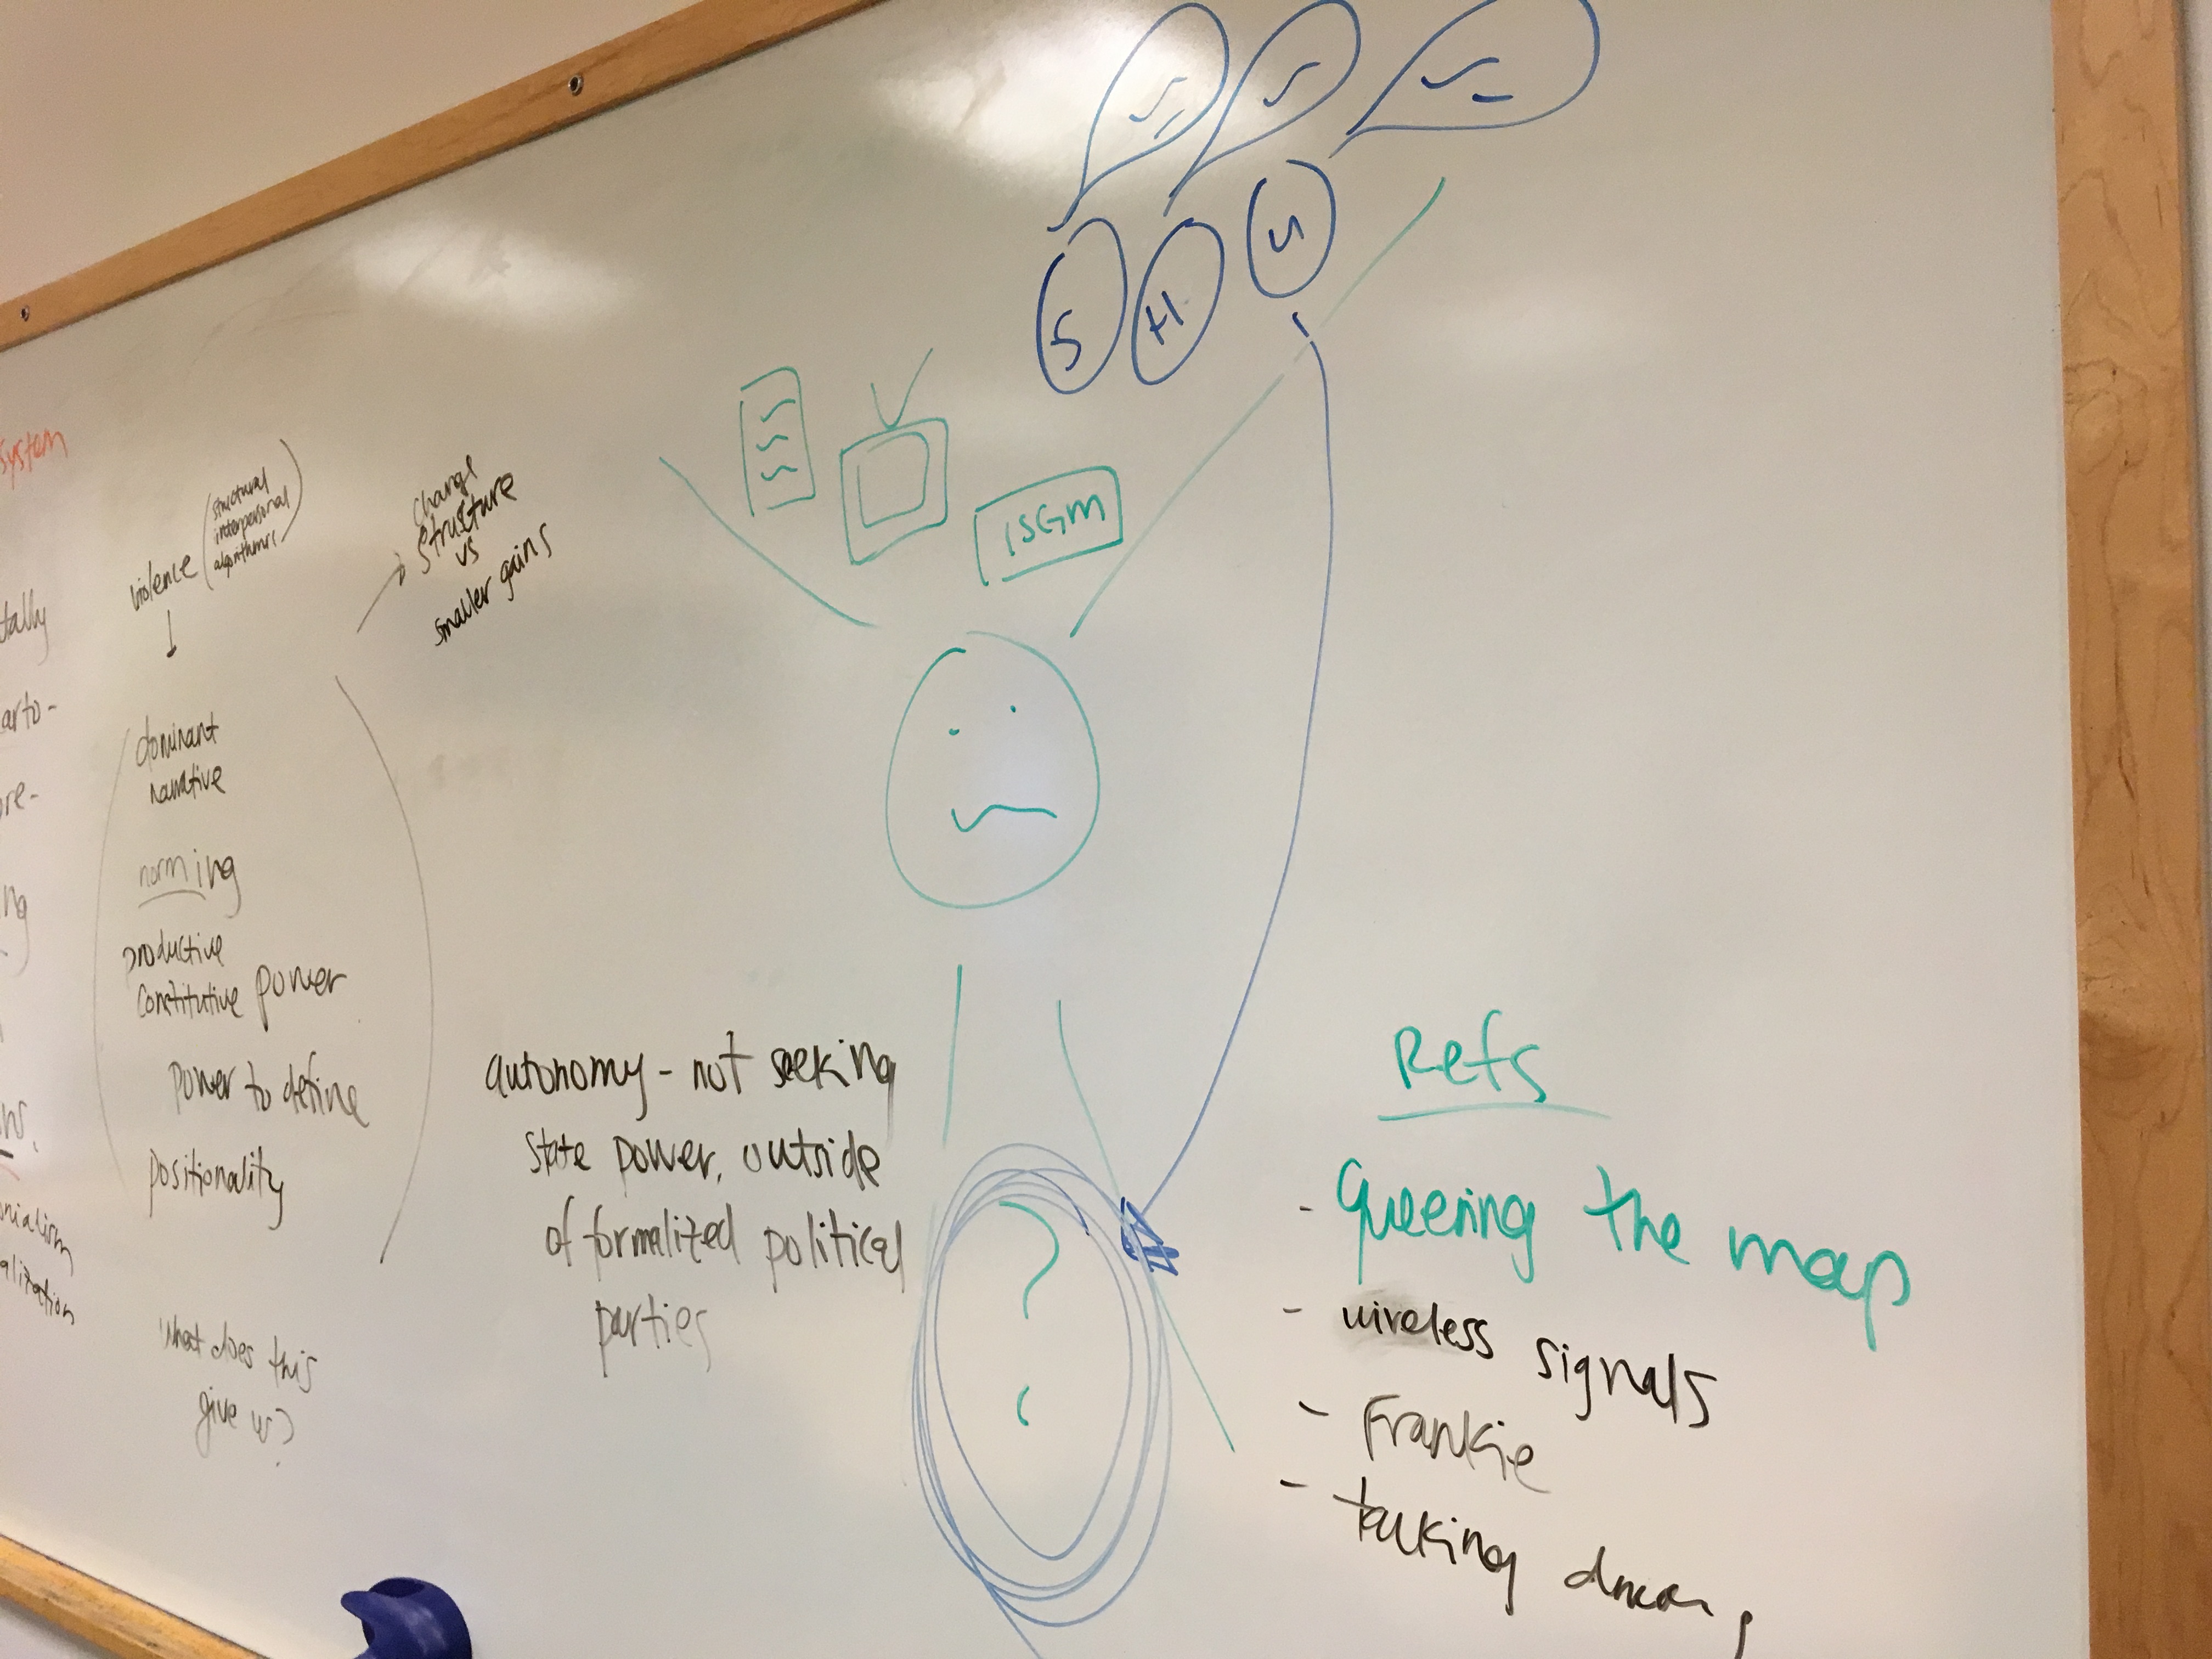 system
tally
arto-
ore-
ng
nialism
alization
violence
(structural
interpersonal
algorithmic)
change
structure
vs
smaller gains
dominant
narrative
norming
productive
constitutive power
power to define
positionality
What does this
give us?
S
H
ISGM
autonomy - not seeking
state power, outside
of formalized political
parties
?
Refs
- Queering the map
- wireless signals
- Frankie
- talking